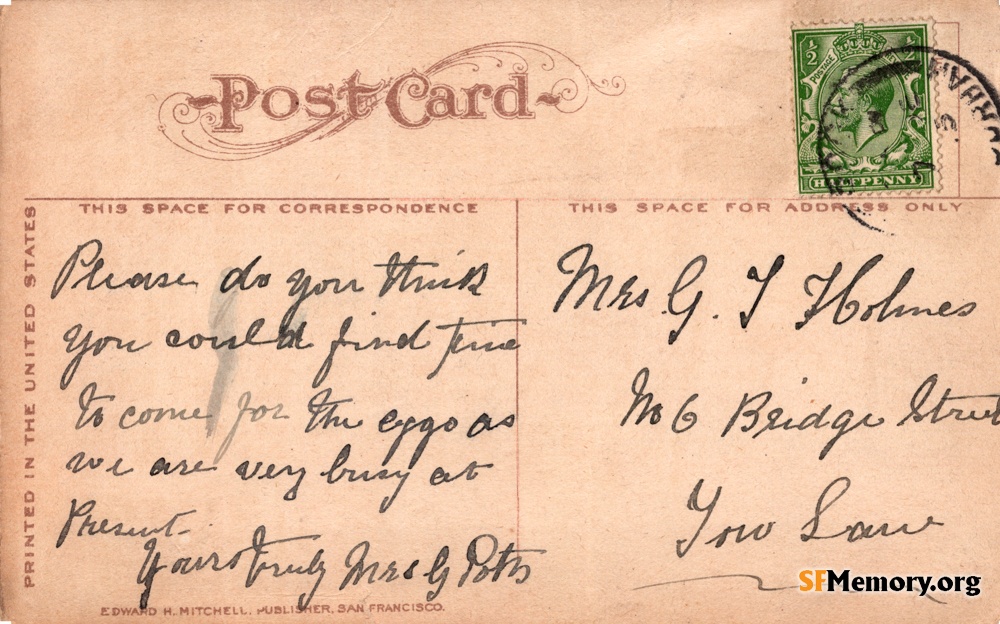 Post Card
½ ½
POSTAGE
HALFPENNY
THIS SPACE FOR CORRESPONDENCE
THIS SPACE FOR ADDRESS ONLY
PRINTED IN THE UNITED STATES
Please do you think
you could find time
to come for the eggs as
we are very busy at
Present
Yours truly Mrs G Potts
Mrs G. T Holmes
No 6 Bridge Street
Tow Law
EDWARD H. MITCHELL, PUBLISHER, SAN FRANCISCO.
SFMemory.org